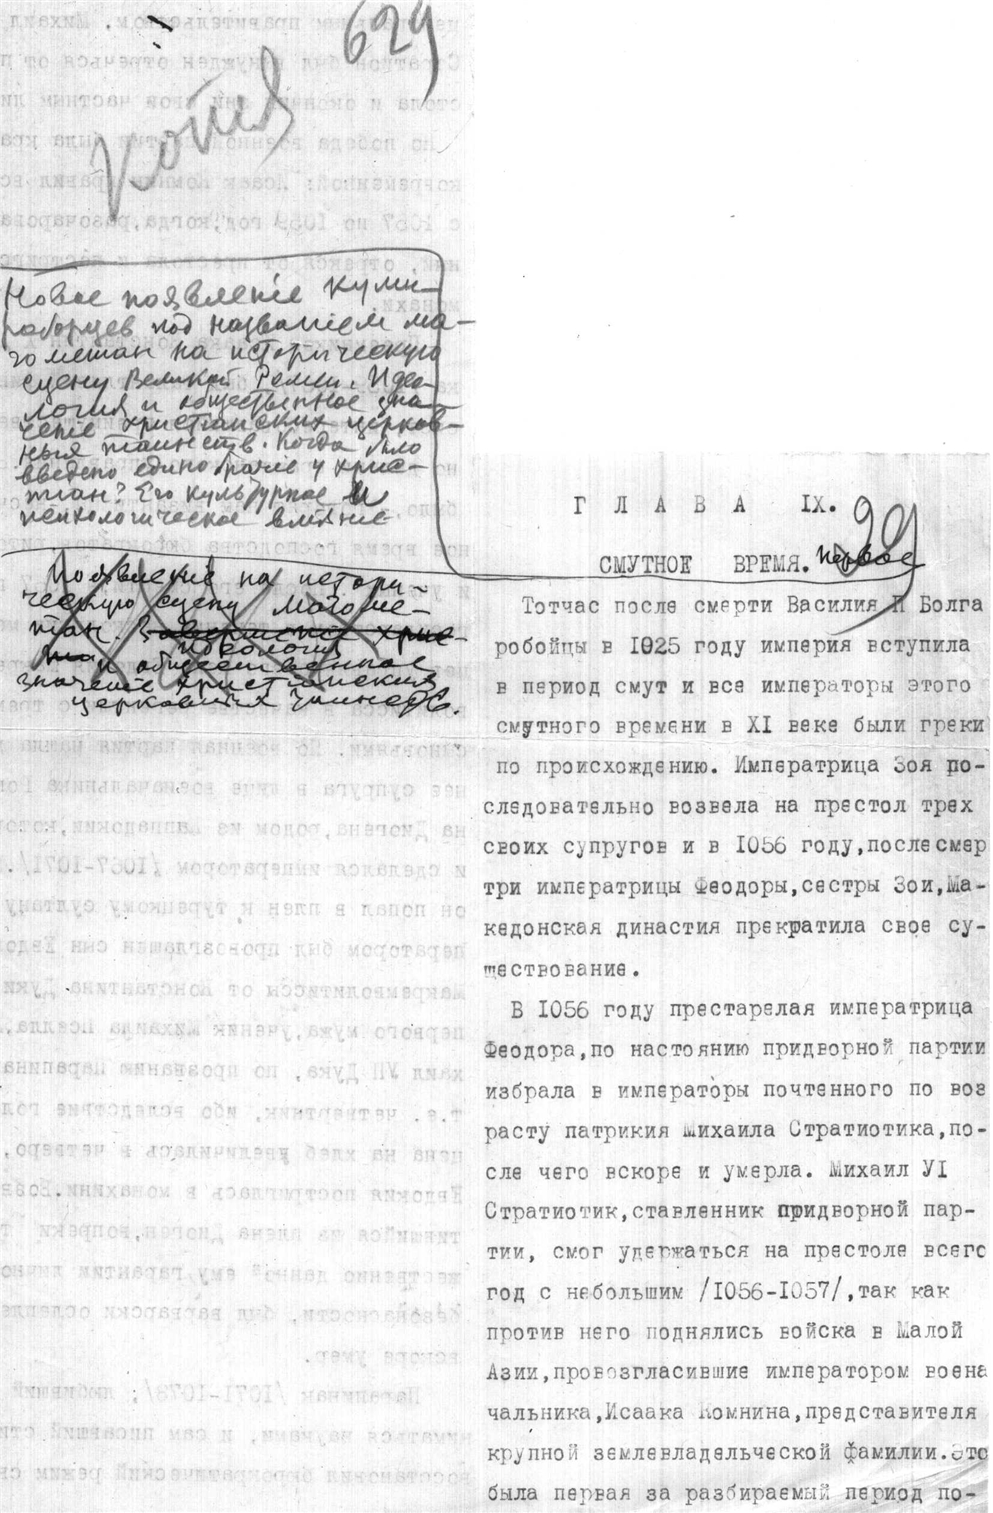 629
Копия
Новое появленіе кумi-
роборцев под названіем ма-
гометан на историческую
сцену Великой Ромеи. Идео-
логия и общественное зна-
чение христианских церков-
ных таинств. Когда было
введено единобрачіе у хрис-
тиан? Его культурное и
психологическое вліяние
Появленіе на истори-
ческую сцену магоме-
тан. Завершеніе хрис-
идеология
и общественное
значеніе христианских
церковных таинств.
Г Л А В А IX.
99
СМУТНОЕ ВРЕМЯ. первое
Тотчас после смерти Василия II Болга
робойцы в I025 году империя вступила
в период смут и все императоры этого
смутного времени в XI веке были греки
по происхождению. Императрица Зоя по-
следовательно возвела на престол трех
своих супругов и в I056 году,послесмер
три императрицы Феодоры,сестры Зои,Ма-
кедонская династия прекратила свое су-
ществование.
В I056 году престарелая императрица
Феодора,по настоянию придворной партии
избрала в императоры почтенного по воз
расту патрикия Михаила Стратиотика,по-
сле чего вскоре и умерла. Михаил УI
Стратиотик,ставленник придворной пар-
тии, смог удержаться на престоле всего
год с небольшим /I056-I057/,так как
против него поднялись войска в Малой
Азии,провозгласившие императором воена
чальника,Исаака Комнина,представителя
крупной землевладельческой фамилии.Это
была первая за разбираемый период по-